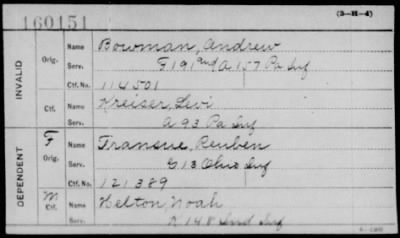 160151
(3-H-4)
INVALID
Orig.
Name Bowman, Andrew
Serv. F 191 and A 157 Pa Inf
Ctf. No. 114501
Ctf.
Name Kreiser, Levi
Serv. A 93 Pa Inf
DEPENDENT
F
Orig.
Name Transue, Reuben
Serv. G 13 Ohio Inf
Ctf. No. 121389
M
Ctf.
Name Helton, Noah
Serv. K 148 Ind Inf